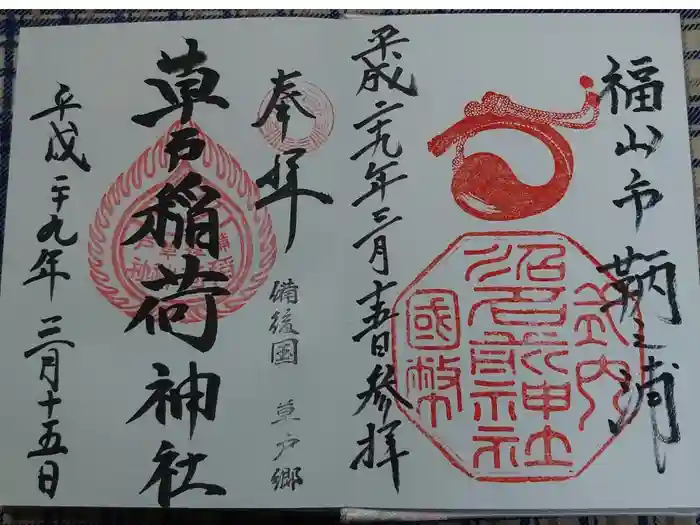 福山市 鞆之浦
式内
沼名前神社
國幣
平成二十九年三月十五日参拝
奉拝
備後国 草戸郷
草戸稲荷神社
平成二十九年 三月十五日